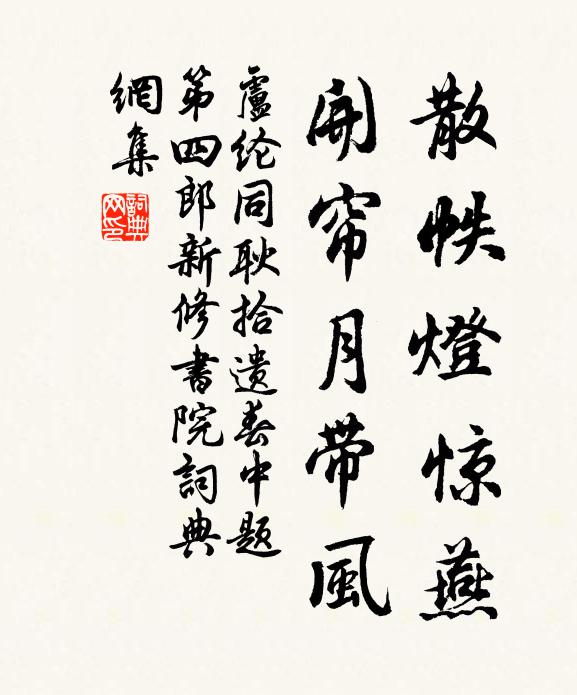 散帙燈惊燕
開帘月带風
盧纶同耿拾遺春中題
第四郎新修書院詞典
網集
詞典
网印